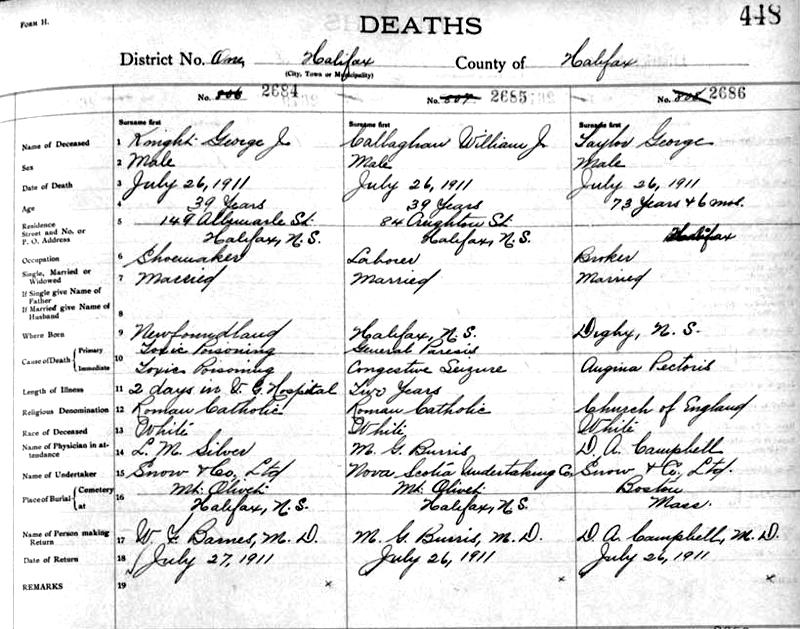 FORM H.
DEATHS
448
District No. One, Halifax County of Halifax
(City, Town or Municipality)
No. 806 2684 No. 807 2685 No. 808 2686
Surname first Surname first Surname first
Name of Deceased 1 Knight George J. Callaghan William J. Taylor George
Sex 2 Male Male Male
Date of Death 3 July 26, 1911 July 26, 1911 July 26, 1911
Age 4 39 Years 39 Years 73 Years & 6 mos.
Residence 5 149 Albemarle St. 84 Creighton St.
Street and No. or
P. O. Address Halifax, N.S. Halifax, N.S. Halifax
Occupation 6 Shoemaker Laborer Broker
Single, Married or
Widowed 7 Married Married Married
If Single give Name of
Father
If Married give Name of
Husband 8
Where Born 9 Newfoundland Halifax, N.S. Digby, N.S.
Cause of Death Primary Toxic Poisoning General Paresis
10
Immediate Toxic Poisoning Congestive Seizure Angina Pectoris
Length of Illness 11 2 days in V. G. Hospital Two Years
Religious Denomination 12 Roman Catholic Roman Catholic Church of England
Race of Deceased 13 White White White
Name of Physician in at-
tendance 14 L. M. Silver M. G. Burris D. A. Campbell
Name of Undertaker 15 Snow & Co, Ltd Nova Scotia Undertaking Co. Snow & Co, Ltd.
Place of Burial Cemetery 16 Mt. Olivet Mt. Olivet Boston
at Halifax, N.S. Halifax, N.S. Mass.
Name of Person making
Return 17 W. F. Barnes, M. D. M. G. Burris, M. D. D. A. Campbell, M. D.
Date of Return 18 July 27, 1911 July 26, 1911 July 26, 1911
REMARKS 19 x x x